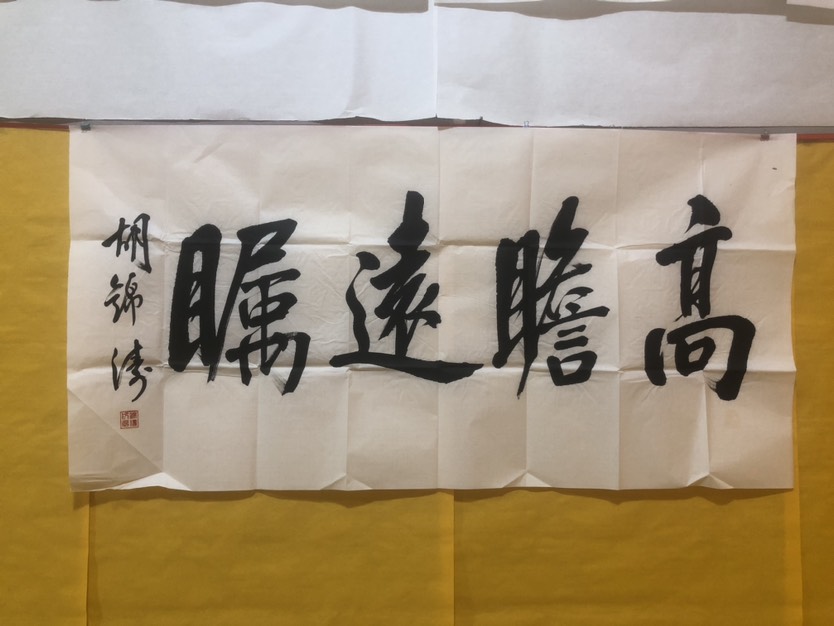 高瞻遠矚
胡錦濤